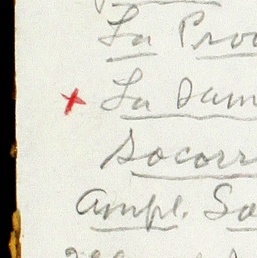 La Prov
x La Dam
Socorr
Ampl. So